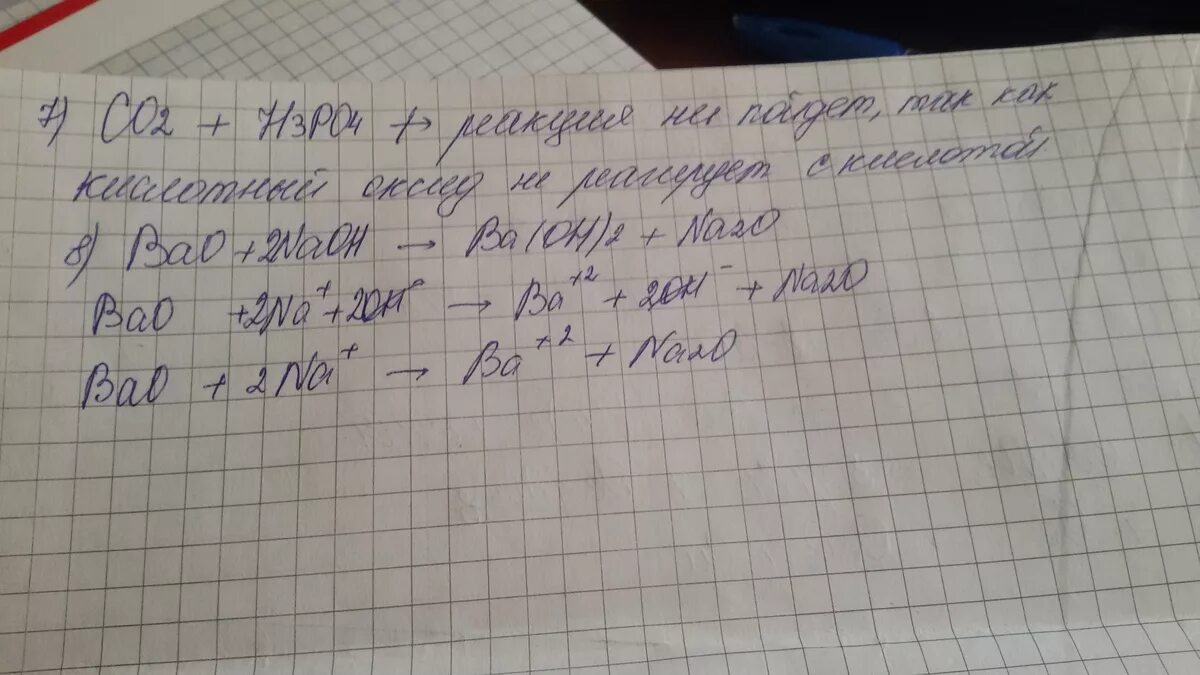 7) CO2 + H3PO4 ↛ реакция не пойдет, так как
кислотный оксид не реагирует с кислотой
8) BaO + 2NaOH → Ba(OH)2 + Na2O
BaO + 2Na⁺ + 2OH⁻ → Ba⁺² + 2OH⁻ + Na2O
BaO + 2Na⁺ → Ba⁺² + Na2O